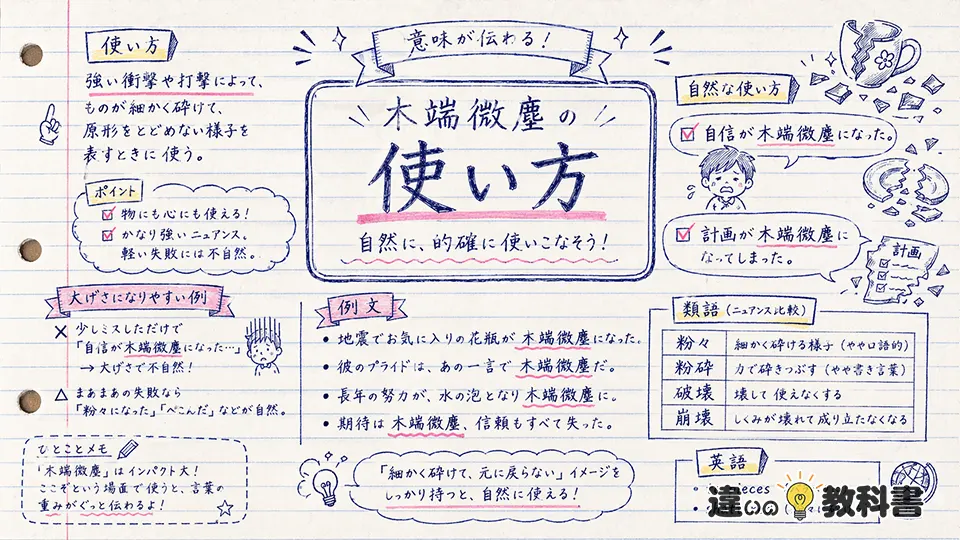 意味が伝わる!
木端微塵の
使い方
自然に、的確に使いこなそう!
使い方
強い衝撃や打撃によって、
ものが細かく砕けて、
原形をとどめない様子を
表すときに使う。
ポイント
物にも心にも使える!
かなり強いニュアンス。
軽い失敗には不自然。
自然な使い方
自信が木端微塵になった。
計画が木端微塵に
なってしまった。
計画
大げさになりやすい例
× 少しミスしただけで
「自信が木端微塵になった…」
→ 大げさで不自然!
△ まあまあの失敗なら
「粉々になった」「ぺこんだ」などが自然。
ひとことメモ
「木端微塵」はインパクト大!
ここぞという場面で使うと、言葉の
重みがぐっと伝わるよ!
例文
• 地震でお気に入りの花瓶が木端微塵になった。
• 彼のプライドは、あの一言で木端微塵だ。
• 長年の努力が、水の泡となり木端微塵に。
• 期待は木端微塵、信頼もすべて失った。
「細かく砕けて、元に戻らない」イメージを
しっかり持つと、自然に使える!
類語(ニュアンス比較)
粉々 細かく砕ける様子(やや口語的)
粉砕 力で砕きつぶす(やや書き言葉)
破壊 壊して使えなくする
崩壊 しくみが壊れて成り立たなくなる
英語
違いの教科書